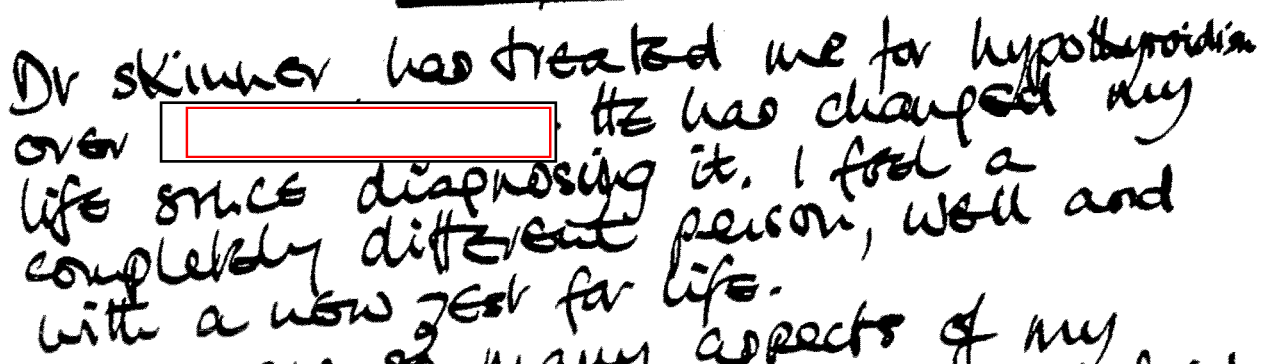 Dr Skinner has treated me for hypothyroidism
over . He has changed my
life since diagnosing it. I feel a
completely different person, well and
with a new zest for life.
so many aspects of my